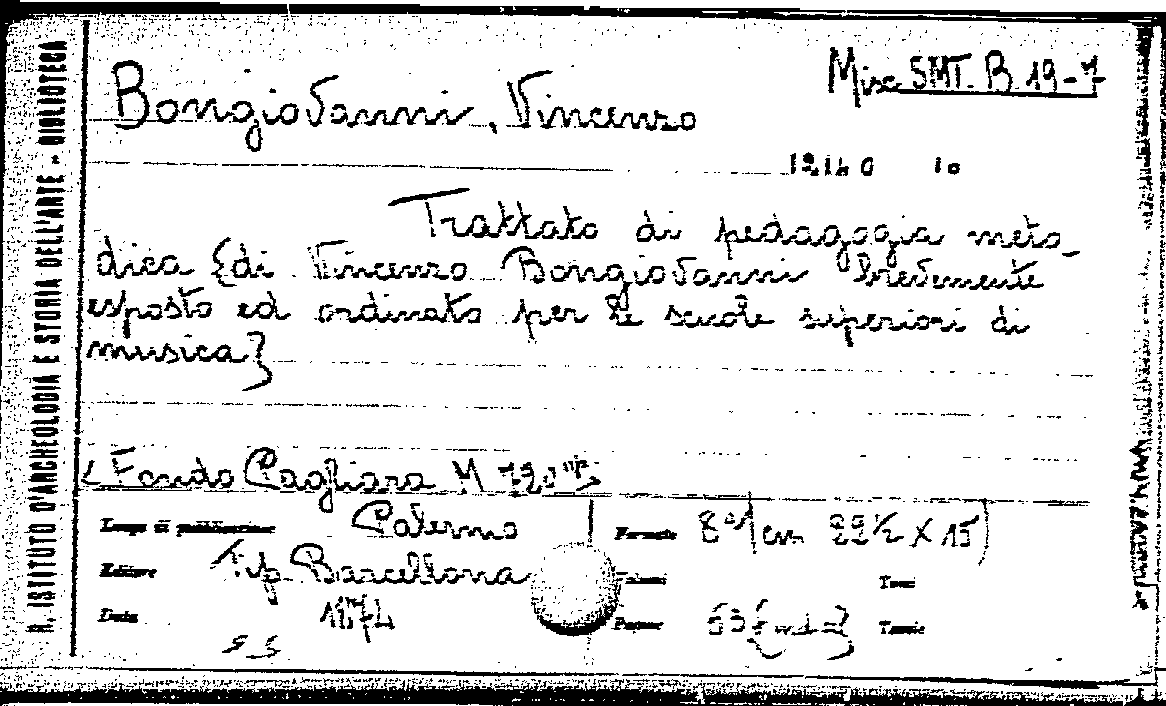 R. ISTITUTO D'ARCHEOLOGIA E STORIA DELL'ARTE - BIBLIOTECA
Misc SMT. B 19-7
Bongiovanni, Vincenzo
Trattato di pedagogia meto_
dica {di Vincenzo Bongiovanni brevemente
esposto ed ordinato per le scuole superiori di
musica}
Fondo Pagliara M 720
Luogo di pubblicazione Palermo
Formato 8° cm 22½ X 15
Editore Tip. Barcellona
Volumi Tomi
Data 1874
Pagine 53 Tavole